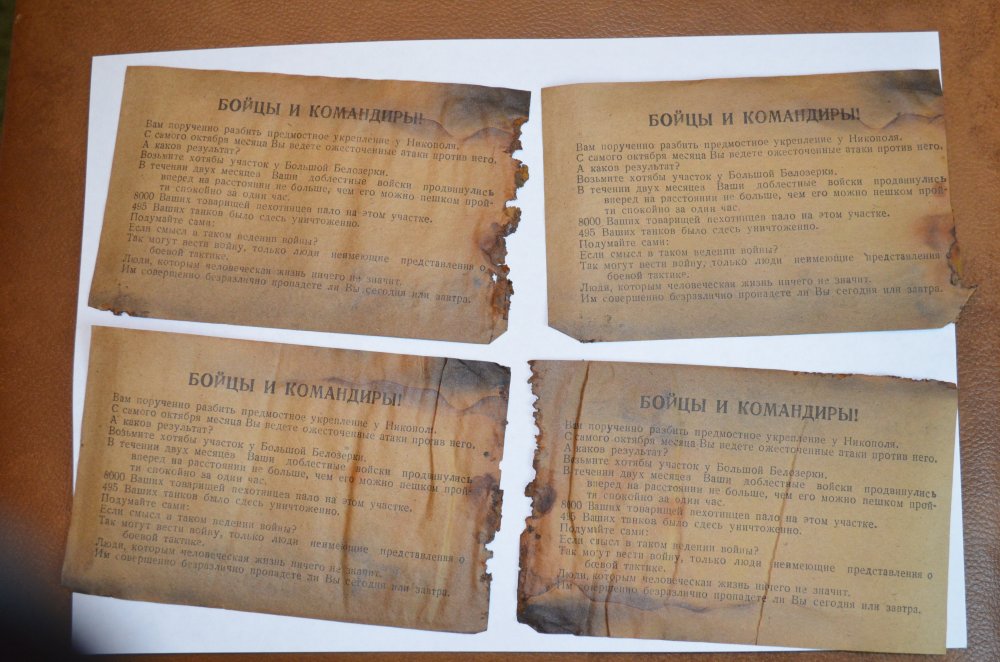 БОЙЦЫ И КОМАНДИРЫ!
Вам порученно разбить предмостное укрепление у Никополя.
С самого октября месяца Вы ведете ожесточенные атаки против него.
А каков результат?
Возьмите хотябы участок у Большой Белозерки.
В течении двух месяцев Ваши доблестные войски продвинулись
вперед на расстоянии не больше, чем его можно пешком прой-
ти спокойно за один час.
8000 Ваших товарищей пехотинцев пало на этом участке.
495 Ваших танков было сдесь уничтоженно.
Подумайте сами:
Если смысл в таком ведении войны?
Так могут вести войну, только люди неимеющие представления о
боевой тактике.
Люди, которым человеческая жизнь ничего не значит.
Им совершенно безразлично пропадете ли Вы сегодня или завтра.
БОЙЦЫ И КОМАНДИРЫ!
Вам порученно разбить предмостное укрепление у Никополя.
С самого октября месяца Вы ведете ожесточенные атаки против него.
А каков результат?
Возьмите хотябы участок у Большой Белозерки.
В течении двух месяцев Ваши доблестные войски продвинулись
вперед на расстоянии не больше, чем его можно пешком прой-
ти спокойно за один час.
8000 Ваших товарищей пехотинцев пало на этом участке.
495 Ваших танков было сдесь уничтоженно.
Подумайте сами:
Если смысл в таком ведении войны?
Так могут вести войну, только люди неимеющие представления
боевой тактике.
Люди, которым человеческая жизнь ничего не значит.
Им совершенно безразлично пропадете ли Вы сегодня или завтра.
БОЙЦЫ И КОМАНДИРЫ!
Вам порученно разбить предмостное укрепление у Никополя.
С самого октября месяца Вы ведете ожесточенные атаки против него.
А каков результат?
Возьмите хотябы участок у Большой Белозерки.
В течении двух месяцев Ваши доблестные войски продвинулись
вперед на расстоянии не больше, чем его можно пешком прой-
ти спокойно за один час.
8000 Ваших товарищей пехотинцев пало на этом участке.
495 Ваших танков было сдесь уничтоженно.
Подумайте сами:
Если смысл в таком ведении войны?
Так могут вести войну, только люди неимеющие представления о
боевой тактике.
Люди, которым человеческая жизнь ничего не значит.
Им совершенно безразлично пропадете ли Вы сегодня или завтра.
БОЙЦЫ И КОМАНДИРЫ!
Вам порученно разбить предмостное укрепление у Никополя.
С самого октября месяца Вы ведете ожесточенные атаки против него.
А каков результат?
Возьмите хотябы участок у Большой Белозерки.
В течении двух месяцев Ваши доблестные войски продвинулись
вперед на расстоянии не больше, чем его можно пешком прой-
ти спокойно за один час.
8000 Ваших товарищей пехотинцев пало на этом участке.
495 Ваших танков было сдесь уничтоженно.
Подумайте сами:
Если смысл в таком ведении войны?
Так могут вести войну, только люди неимеющие представления о
боевой тактике.
Люди, которым человеческая жизнь ничего не значит.
Им совершенно безразлично пропадете ли Вы сегодня или завтра.